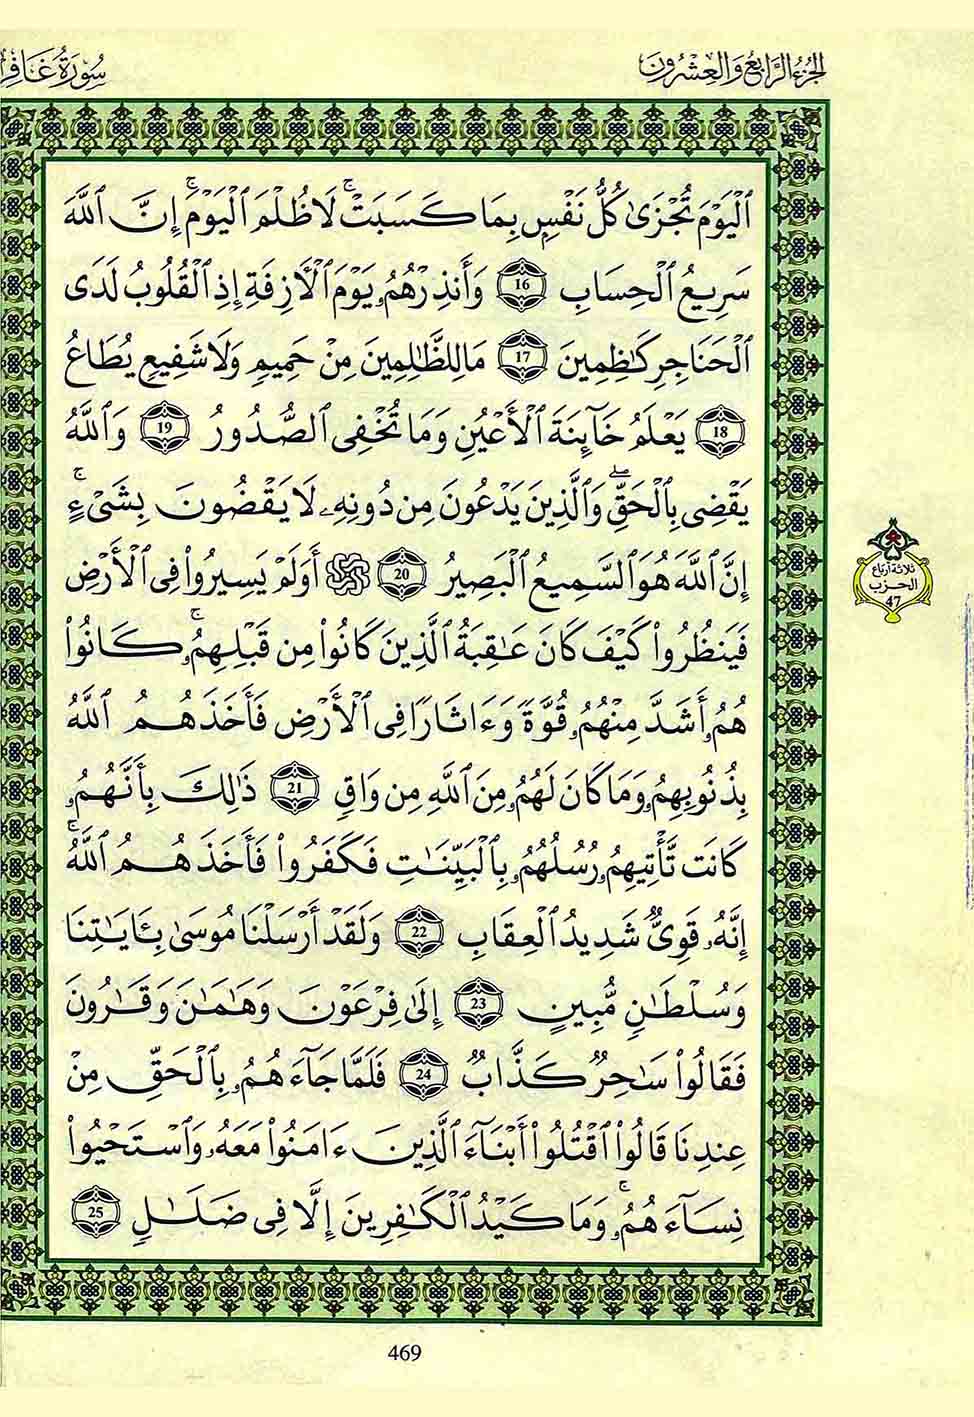 الجزء الرابع والعشرون
سورة غافر
اَ۬لْيَوْمَ تُجْز۪ىٰ كُلُّ نَفْسِۢ بِمَا كَسَبَتْۖ لَا ظُلْمَ اَ۬لْيَوْمَۖ إِنَّ اَ۬للَّهَ
سَرِيعُ اُ۬لْحِسَابِ 16 وَأَنذِرْهُمُۥ يَوْمَ اَ۬لْأَزِفَةِ إِذِ اِ۬لْقُلُوبُ لَدَى
اَ۬لْحَنَاجِرِ كَٰظِمِينَ 17 مَا لِلظَّٰلِمِينَ مِنْ حَمِيمٍ وَلَا شَفِيعٍ يُطَاعُ
18 يَعْلَمُ خَآئِنَةَ اَ۬لْأَعْيُنِ وَمَا تُخْفِي اِ۬لصُّدُورُ 19 وَاَ۬للَّهُ
يَقْضِي بِالْحَقِّۖ وَالَّذِينَ يَدْعُونَ مِن دُونِهِۦ لَا يَقْضُونَ بِشَيْءٍۖ
إِنَّ اَ۬للَّهَ هُوَ اَ۬لسَّمِيعُ اُ۬لْبَصِيرُ 20 ۞ أَوَلَمْ يَسِيرُواْ فِي اِ۬لْأَرْضِ
فَيَنظُرُواْ كَيْفَ كَانَ عَٰقِبَةُ اُ۬لَّذِينَ كَانُواْ مِن قَبْلِهِمُۥۖ كَانُواْ
هُمُۥ أَشَدَّ مِنْهُمُۥ قُوَّةً وَءَاثَارًا فِي اِ۬لْأَرْضِ فَأَخَذَهُمُ اُ۬للَّهُ
بِذُنُوبِهِمُۥ وَمَا كَانَ لَهُمُۥ مِنَ اَ۬للَّهِ مِن وَاقٍ 21 ذَٰلِكَ بِأَنَّهُمُۥ
كَانَت تَّأْتِيهِمُۥ رُسُلُهُمُۥ بِالْبَيِّنَٰتِ فَكَفَرُواْ فَأَخَذَهُمُ اُ۬للَّهُۖ
إِنَّهُۥ قَوِيٌّ شَدِيدُ اُ۬لْعِقَابِ 22 وَلَقَدْ أَرْسَلْنَا مُوسَىٰ بِـَٔايَٰتِنَا
وَسُلْطَٰنٍ مُّبِينٍ 23 إِلَىٰ فِرْعَوْنَ وَهَٰمَٰنَ وَقَٰرُونَ
فَقَالُواْ سَٰحِرٌ كَذَّابٌ 24 فَلَمَّا جَآءَهُمُۥ بِالْحَقِّ مِنْ
عِندِنَا قَالُواْ اُ۟قْتُلُواْ أَبْنَآءَ اَ۬لَّذِينَ ءَامَنُواْ مَعَهُۥ وَاسْتَحْيُواْ
نِسَآءَهُمُۥۖ وَمَا كَيْدُ اُ۬لْكَٰفِرِينَ إِلَّا فِي ضَلَٰلٍ 25
ثلاثة أرباع
الحزب
47
469